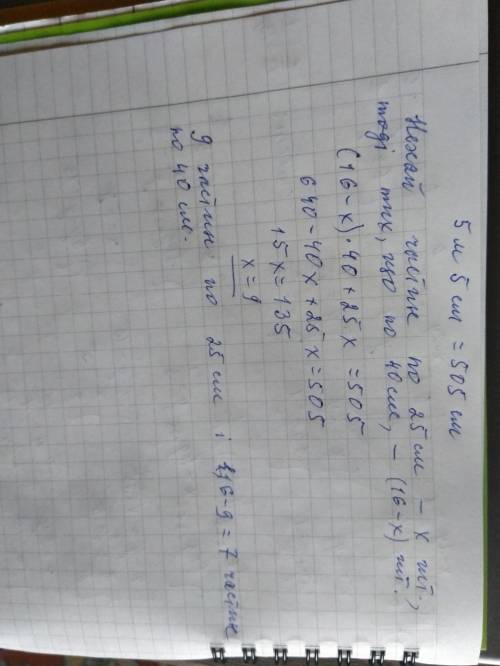 5 м 5 см = 505 см
Нехай частин по 25 см – x шт.,
тоді тих, що по 40 см, – (16-x) шт.
(16-x)·40+25x=505
640-40x+25x=505
15x=135
x=9
9 частин по 25 см і 16-9=7 частин
по 40 см.